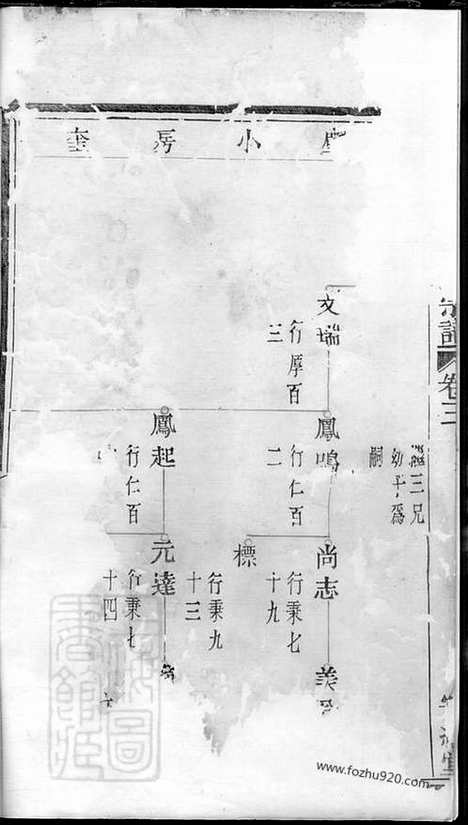 小房奎
宗譜
卷三
繼三兄
幼子為
嗣
文瑞
行厚百
三
鳳鳴
行仁百
二
尚志
行秉七
十九
標
行秉九
十三
鳳起
行仁百
元達
行秉七
十四
www.fozhu920.com